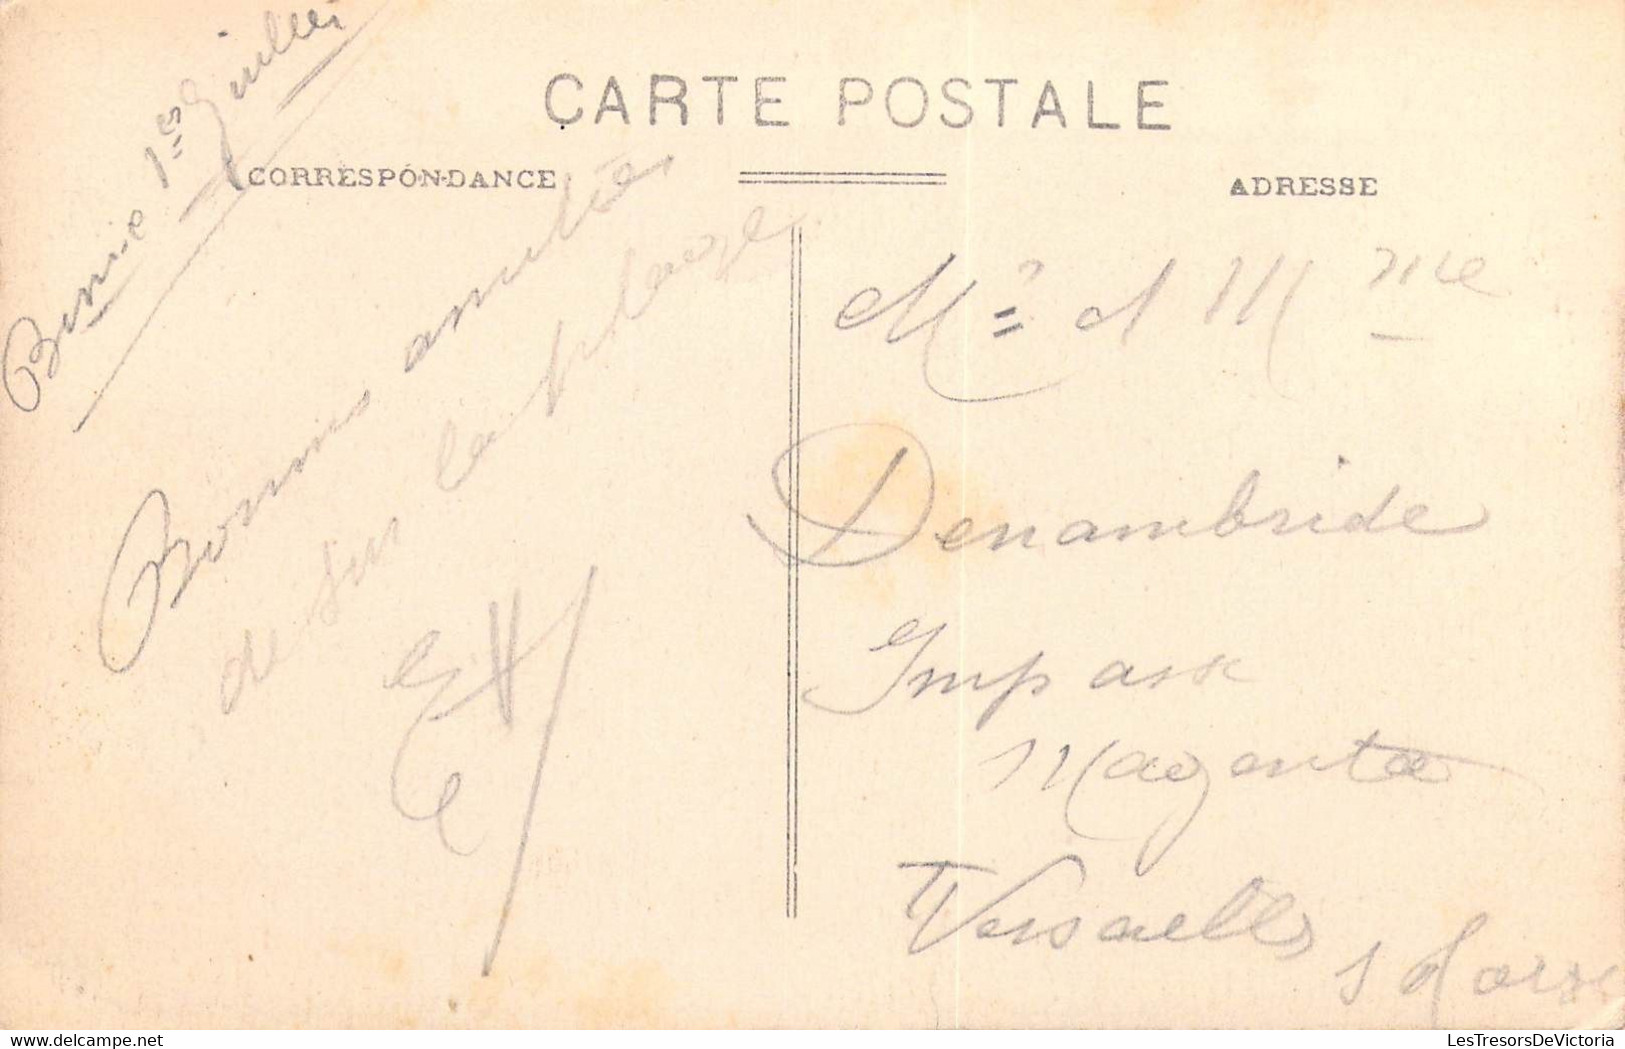 CARTE POSTALE
CORRESPONDANCE
ADRESSE
Bernie 1er Juillet
Bonnes amitiés
de sur la plage
Mr et Mme
Denambride
Impasse
Magenta
Versailles
LesTresorsDeVictoria